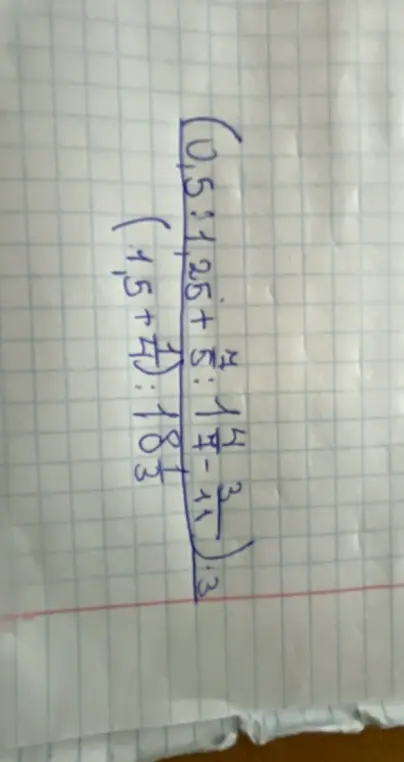 (0,5 : 1,25 + 7/5 : 1 4/7 - 3/11) · 3
(1,5 + 1/4) : 18 1/3